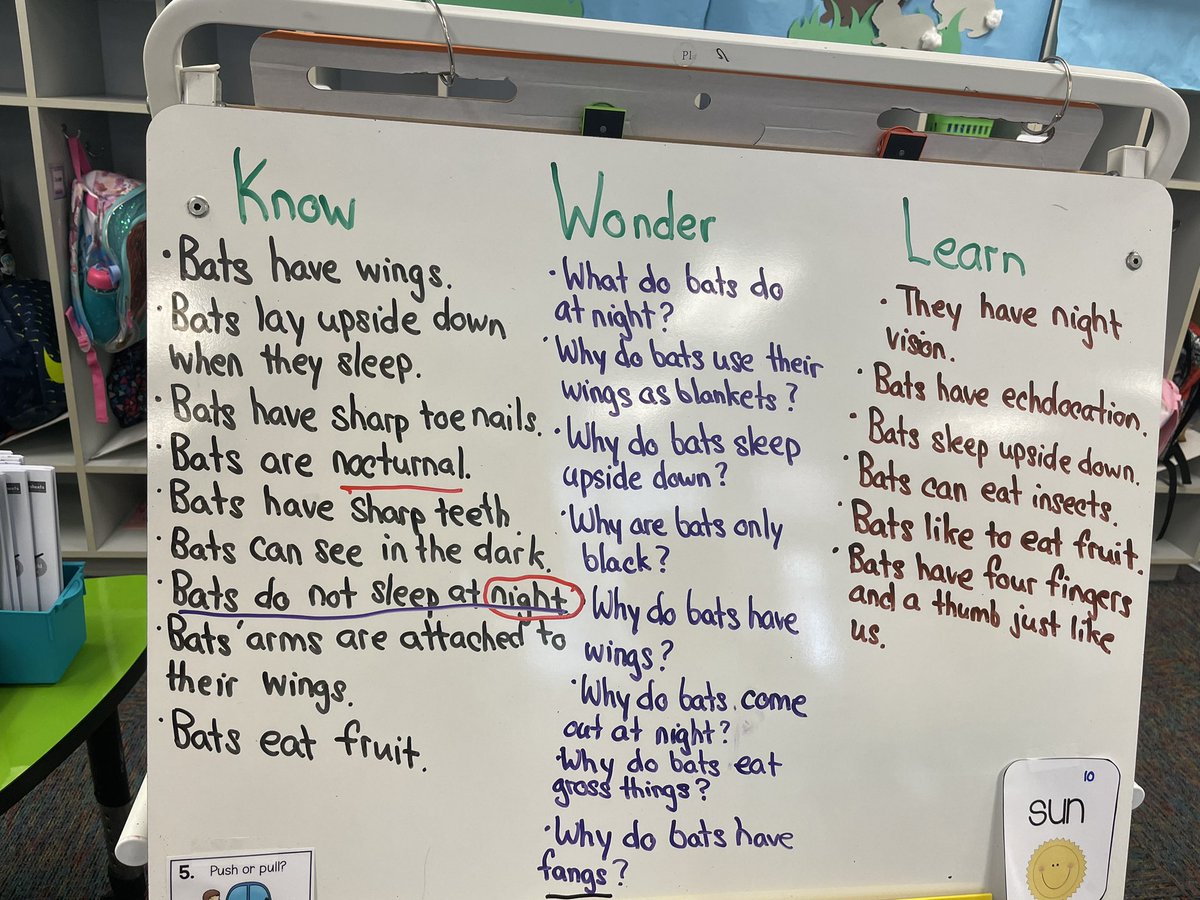 Know
· Bats have wings.
· Bats lay upside down
when they sleep.
· Bats have sharp toe nails.
· Bats are nocturnal.
· Bats have sharp teeth
· Bats can see in the dark.
· Bats do not sleep at night
· Bats' arms are attached to
their wings.
· Bats eat fruit.
Wonder
· What do bats do
at night?
· Why do bats use their
wings as blankets?
· Why do bats sleep
upside down?
· Why are bats only
black?
· Why do bats have
wings?
· Why do bats come
out at night?
· Why do bats eat
gross things?
· Why do bats have
fangs?
Learn
· They have night
vision.
· Bats have echolocation.
· Bats sleep upside down.
· Bats can eat insects.
· Bats like to eat fruit.
· Bats have four fingers
and a thumb just like
us.
5. Push or pull?
10
sun